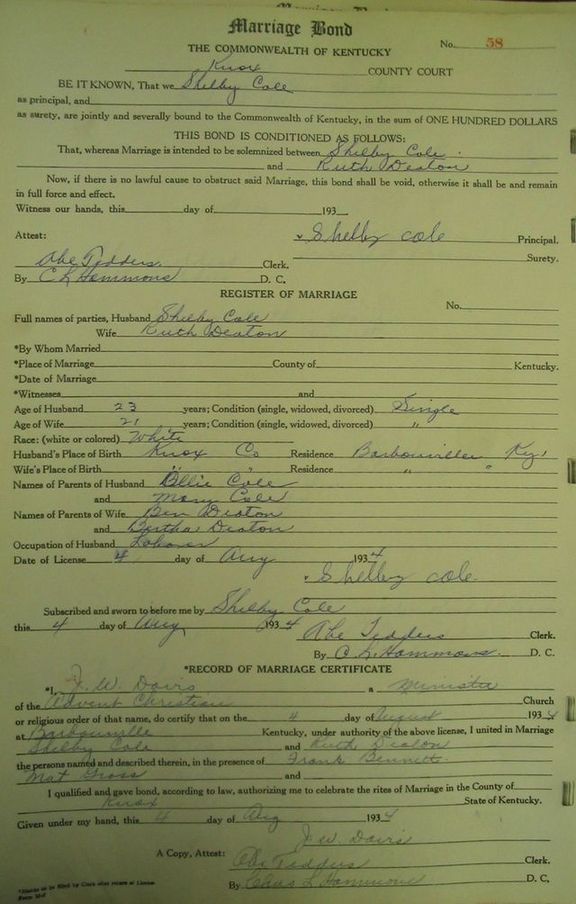 Marriage Bond
THE COMMONWEALTH OF KENTUCKY
No. 58
Knox COUNTY COURT
BE IT KNOWN, That we Shelby Cole
as principal, and
as surety, are jointly and severally bound to the Commonwealth of Kentucky, in the sum of ONE HUNDRED DOLLARS
THIS BOND IS CONDITIONED AS FOLLOWS:
That, whereas Marriage is intended to be solemnized between Shelby Cole
and Ruth Deaton
Now, if there is no lawful cause to obstruct said Marriage, this bond shall be void, otherwise it shall be and remain
in full force and effect.
Witness our hands, this day of 193
Attest: Shelby Cole Principal.
Surety.
Abe Tedders Clerk.
By C L Hammons D. C.
REGISTER OF MARRIAGE
No.
Full names of parties, Husband Shelby Cole
Wife Ruth Deaton
*By Whom Married
*Place of Marriage County of Kentucky.
*Date of Marriage
*Witnesses and
Age of Husband 23 years; Condition (single, widowed, divorced) Single
Age of Wife 21 years; Condition (single, widowed, divorced) "
Race: (white or colored) White
Husband's Place of Birth Knox Co Residence Barbourville Ky.
Wife's Place of Birth " " Residence " "
Names of Parents of Husband Ollie Cole
and Mary Cole
Names of Parents of Wife Ben Deaton
and Bertha Deaton
Occupation of Husband Laborer
Date of License 4 day of Aug 1934
Shelby Cole
Subscribed and sworn to before me by Shelby Cole
this 4 day of Aug 1934 Abe Tedders Clerk.
By C. L. Hammons D. C.
*RECORD OF MARRIAGE CERTIFICATE
*I, J. W. Davis a Minister
of the Advent Christian Church
or religious order of that name, do certify that on the 4 day of August 1934
at Barbourville Kentucky, under authority of the above license, I united in Marriage
Shelby Cole and Ruth Deaton
the persons named and described therein, in the presence of Frank Bennett
Mat Gross and
I qualified and gave bond, according to law, authorizing me to celebrate the rites of Marriage in the County of
Knox State of Kentucky.
Given under my hand, this 4 day of Aug 1934
J. W. Davis
A Copy, Attest: Abe Tedders Clerk.
By Chas L Hammons D. C.